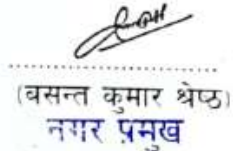 (बसन्त कुमार श्रेष्ठ)
नगर प्रमुख